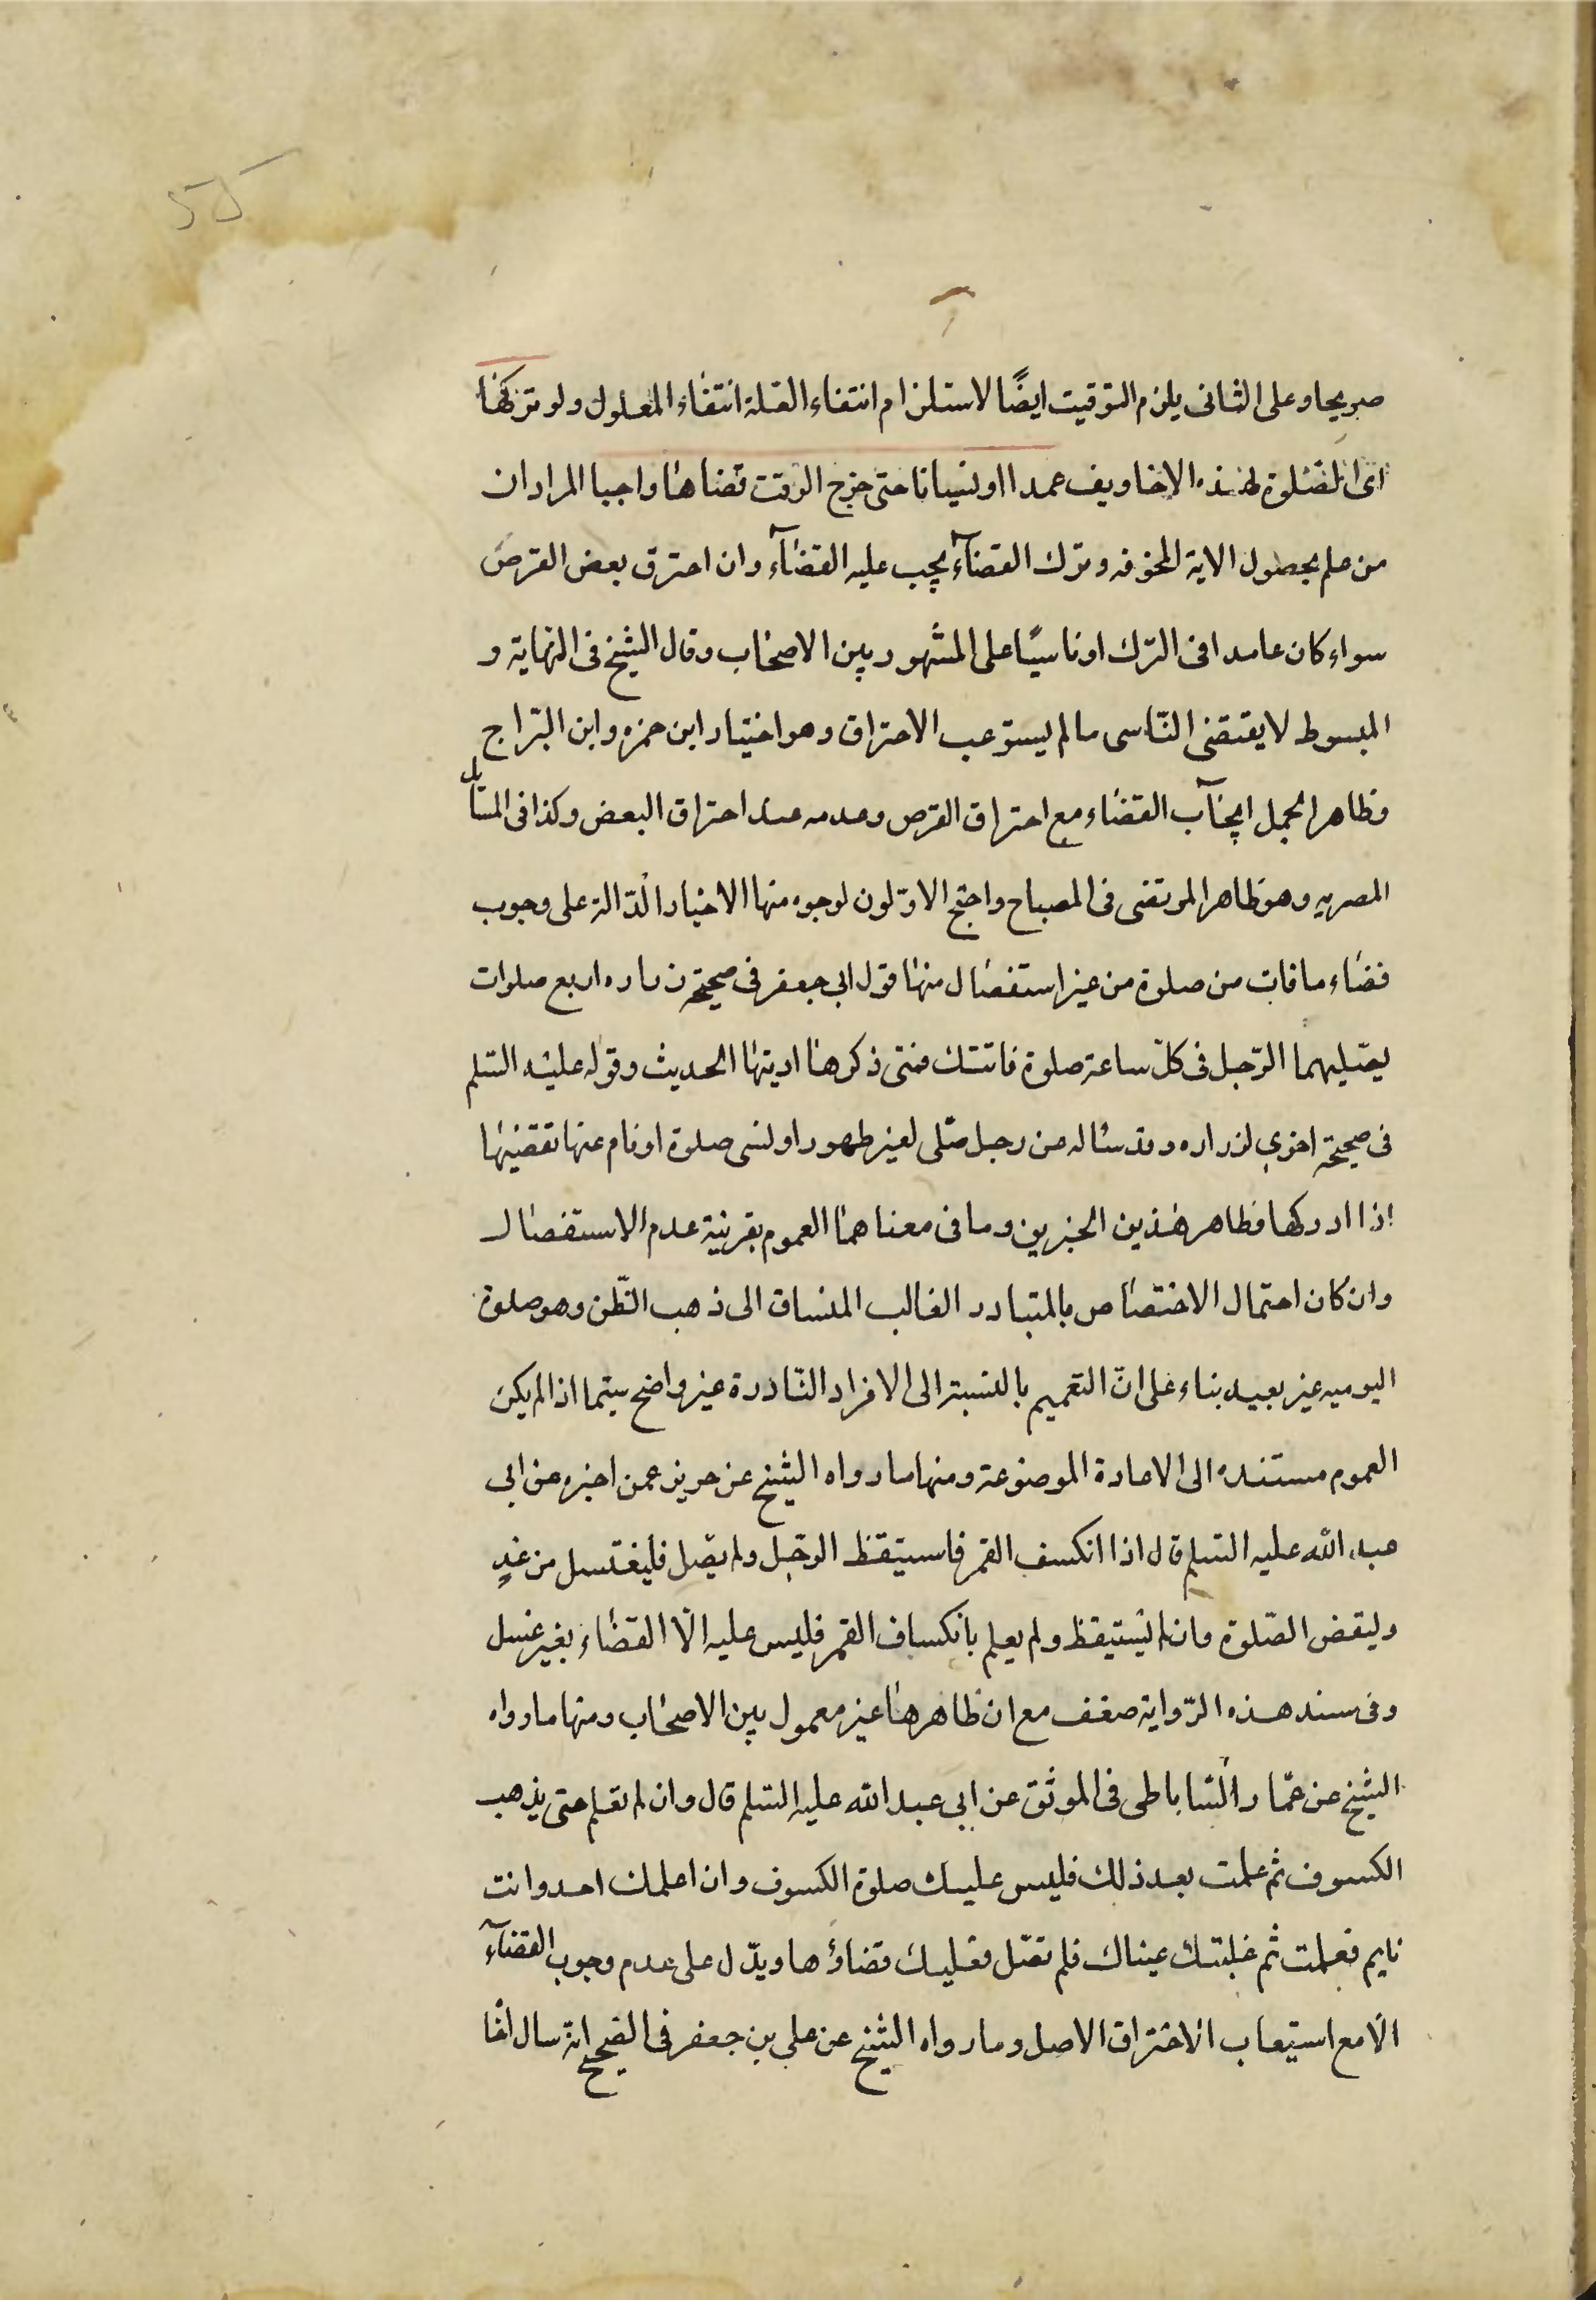 صريحا وعلى الثانى يلزم التوقيت ايضًا لاستلزام انتفاء العلة انتفاء المعلول ولو تركها
اى الصلوة لهذه الاخاويف عمدا او نسيانا حتى خرج الوقت قضاها واجبا المراد ان
من علم بحصول الاية المخوفه وترك القضآء يجب عليه القضآء وان احترق بعض القرص
سواء كان عامدا فى الترك او ناسيًا على المشهور بين الاصحاب وقال الشيخ فى النهاية و
المبسوط لا يقتضى النّاسى ما لم يستوعب الاحتراق وهو اختيار ابن حمزه وابن البرّاج
وظاهر الجمل ايجآب القضاء مع احتراق القرص وعدمه عند احتراق البعض وكذا فى المسآيل
المصريه وهو ظاهر المرتضى فى المصباح واحتج الاوّلون لوجوه منها الاخبار الدّالة على وجوب
قضاء ما فات من صلوة من غير استفصال منها قول ابى جعفر فى صحيحة زراره اربع صلوات
يصّليهما الرّجل فى كلّ ساعة صلوة فاتتك فمتى ذكرها اديتها الحديث وقوله عليه السّلم
فى صحيحة اخرى لزراره وقد سئاله عن رجل صّلى لغير طهور او نسى صلوة او نام عنها تقضيها
اذا ادركها فظاهر هذين الخبرين وما فى معناهما العموم بقرينة عدم الاستفصال
وان كان احتمال الاختصاص بالمتبادر الغالب المنساق الى ذهب الظّن وهو صلوة
اليوميه غير بعيد بناء على انّ التعميم بالنسبة الى الافراد النّادرة غير واضح سيّما اذا لم يكن
العموم مستنده الى الاعادة الموضوعة ومنها ما رواه الشيخ عن حريز عمن اخبره عن ابى
عبد الله عليه السّلم قال اذا انكسف القمر فاستيقظ الرّجل ولم يصّل فليغتسل من غدٍ
وليقض الصّلوة وان لم يستيقظ ولم يعلم بانكساف القمر فليس عليه الّا القضاء بغير غسل
وفى سند هذه الرّواية ضعف مع ان ظاهرها غير معمول بين الاصحاب ومنها ما رواه
الشيخ عن عمّار السّاباطى فى الموثق عن ابى عبد الله عليه السّلم قال وان لم تعلم حتى يذهب
الكسوف ثم علمت بعد ذلك فليس عليك صلوة الكسوف وان اعلمك احد وانت
نايم فعلمت ثم غلبتك عيناك فلم تصّل فعليك قضاؤها ويدّل على عدم وجوب القضآء
الّا مع استيعاب الاحتراق الاصل وما رواه الشيخ عن على بن جعفر فى الصّحيح انّه سال اخا